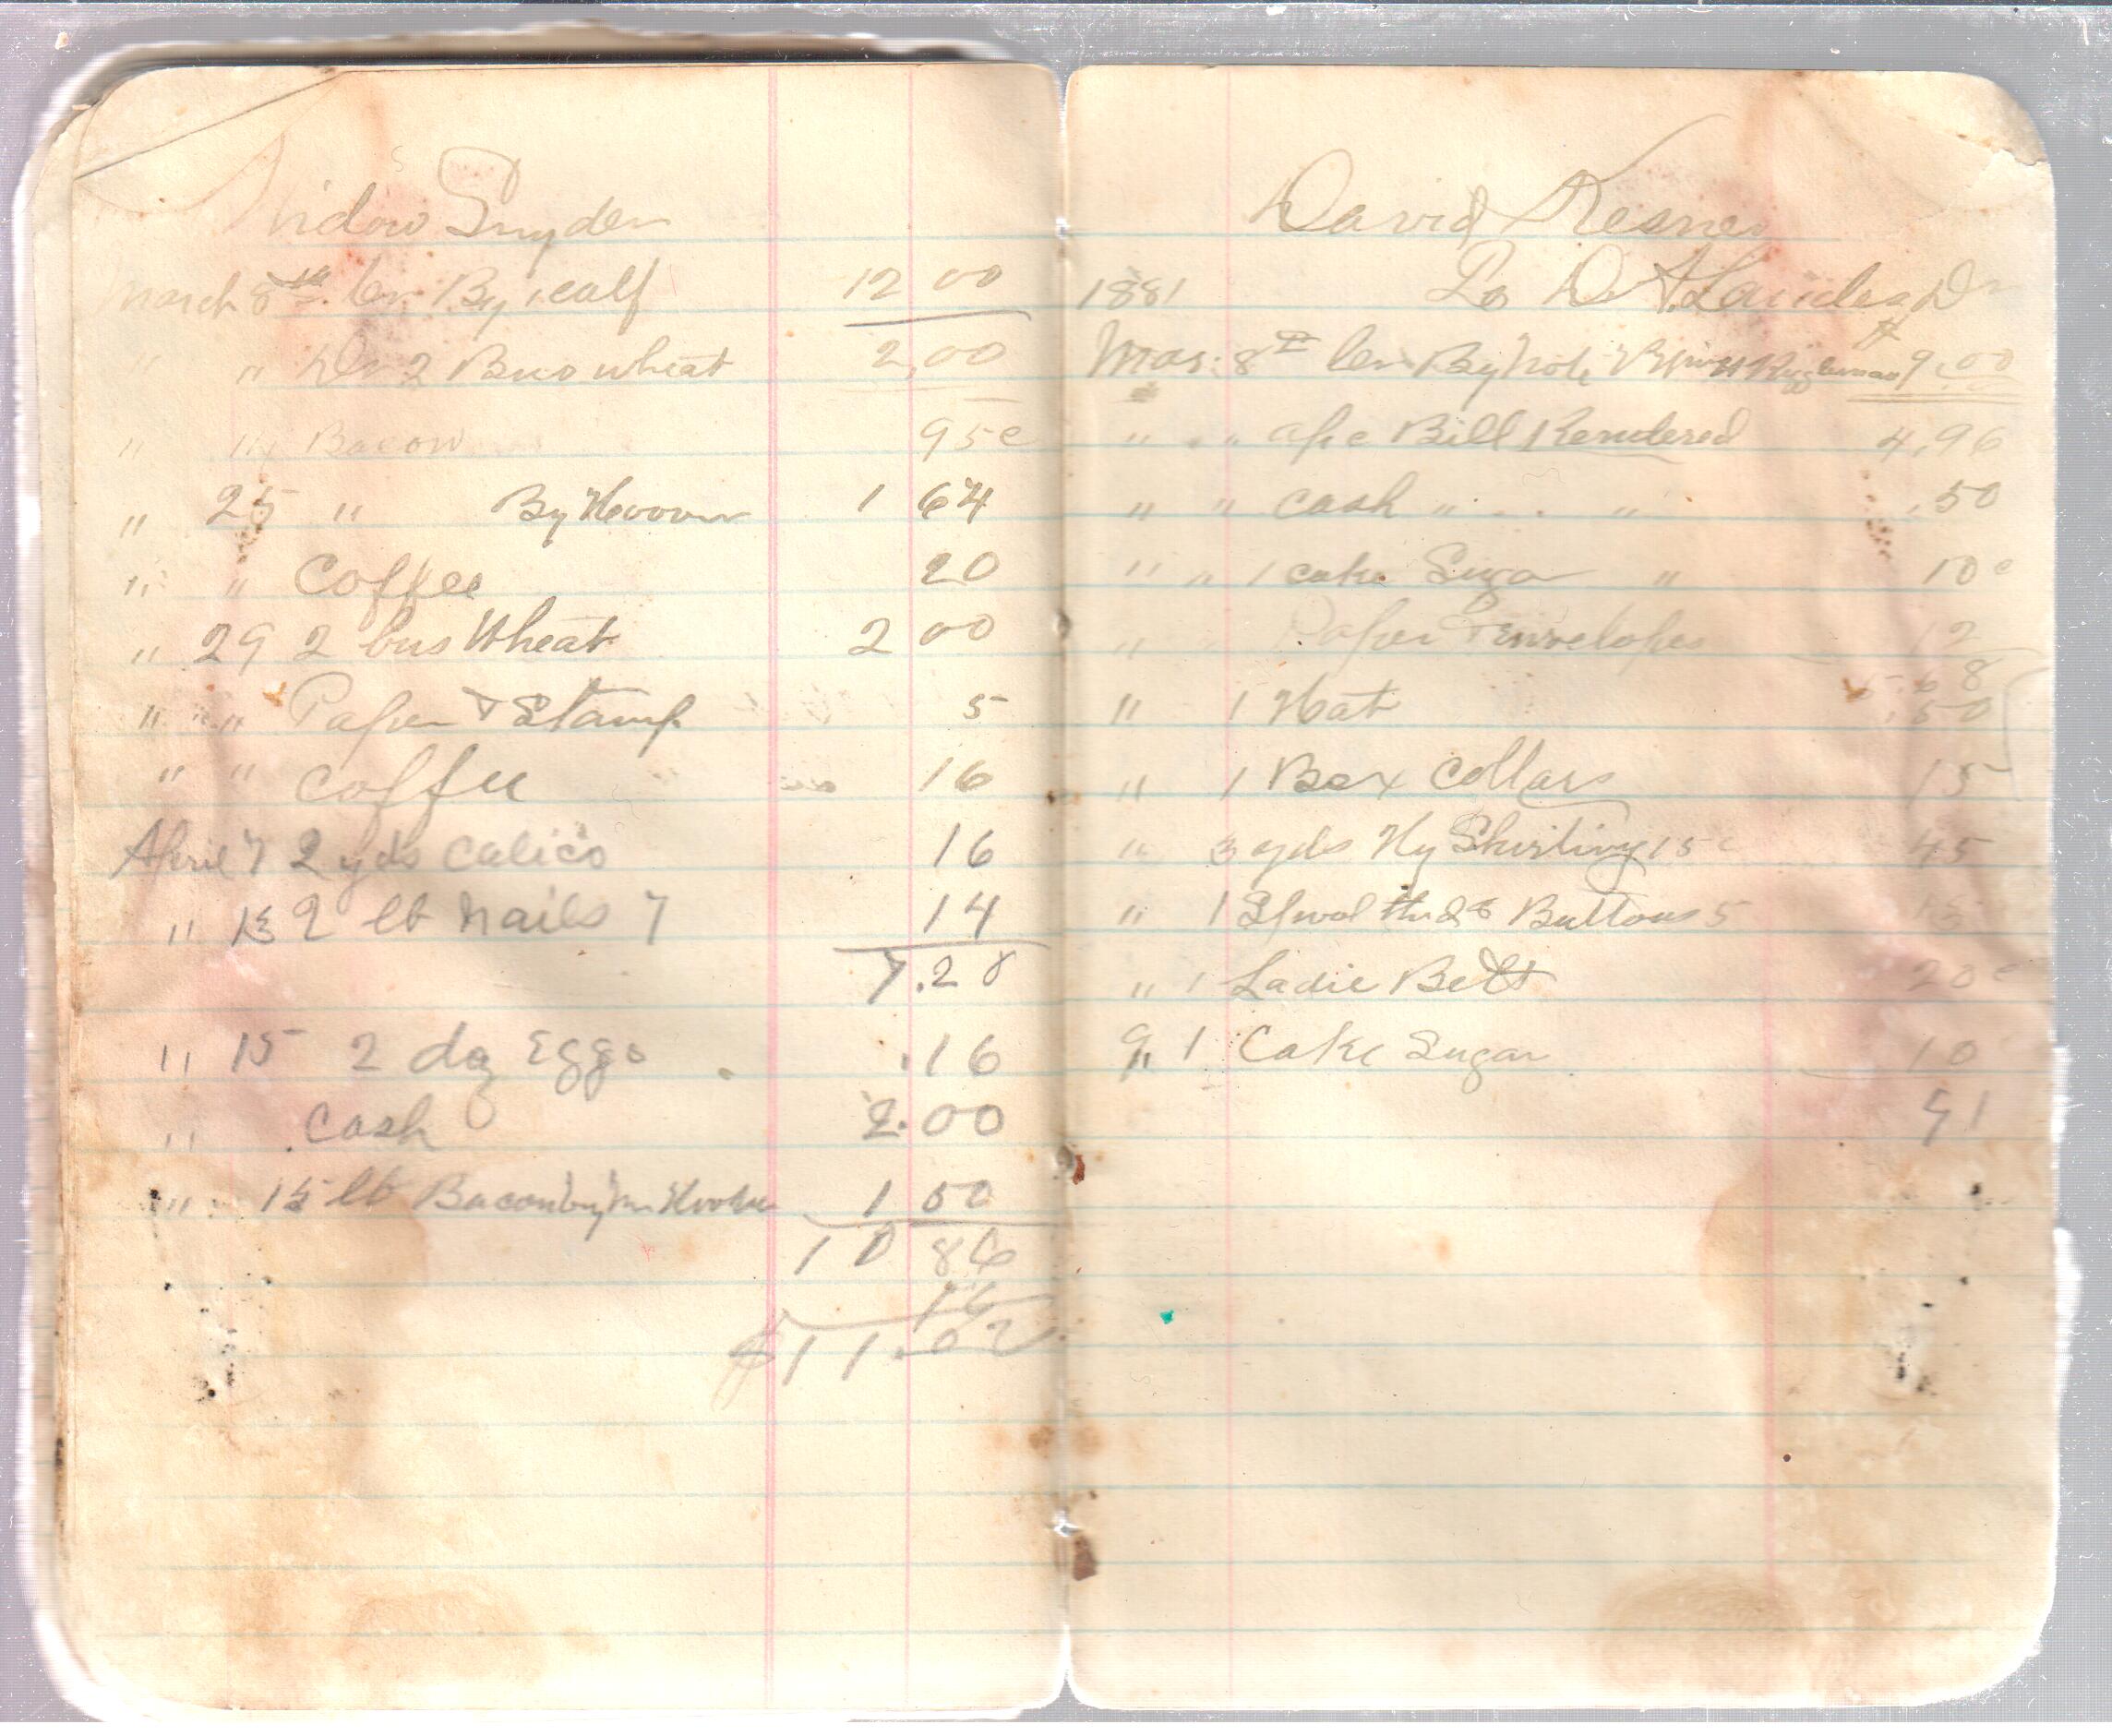 Widow Snyder
March 8th Cr By 1 calf 12 00
" " Dr 2 Bus wheat 2.00
" " Bacon 95c
" 25 " By Hoover 1 64
" " Coffee 20
" 29 2 bus Wheat 2 00
" " " Paper & Stamp 5
" " Coffee 16
April 7 2 yds Calico 16
" 13 2 lb Nails 7 14
7.28
" 15 2 dz Eggs .16
" Cash 2.00
" 15 lb Bacon by 1 50
10 86
16
$11.02
David Kesner
1881 To D A Dr
Mar. 8th Cr By Note 9.00
" " " a/c Bill Rendered 4.96
" " Cash " " .50
" " 1 cake Sugar " 10c
" Paper & envelopes 12
5.68
" 1 Hat .50
" 1 Box Collars 15
" 3 yds Hy Shirting 15c 45
" 1 Spool thrd & Buttons 5
" 1 Ladie Belt 20c
9 " 1 Cake Sugar 10
91